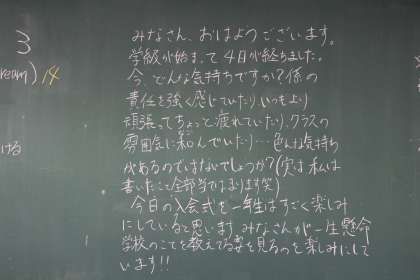 3
ream) 1/4
ける
みなさん、おはようございます。
学級が始まって4日が経ちました。
今、どんな気持ちですか?係の
責任を強く感じていたり、いつもより
頑張ってちょっと疲れていたり、クラスの
雰囲気に和んでいたり…色んな気持ち
があるのではないでしょうか?(実は私は
書いたこと全部当てはまります笑)
今日の入会式を一年生はすごく楽しみ
にしていると思います。みなさんが一生懸命
学校のことを教えてる姿を見るのを楽しみにして
います!!